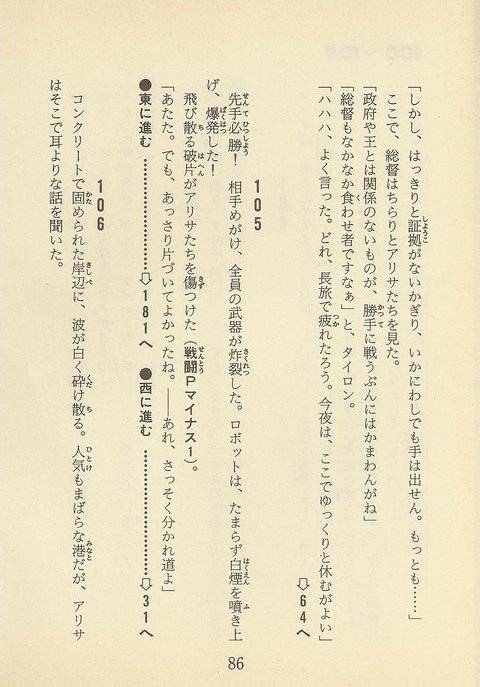 「しかし、はっきりと証拠がないかぎり、いかにわしでも手は出せん。もっとも……」
ここで、総督はちらりとアリサたちを見た。
「政府や王とは関係のないものが、勝手に戦うぶんにはかまわんがね」
「総督もなかなか食わせ者ですなぁ」と、タイロン。
「ハハハ、よく言った。どれ、長旅で疲れたろう。今夜は、ここでゆっくりと休むがよい」
⇨64へ
105
先手必勝！　相手めがけ、全員の武器が炸裂した。ロボットは、たまらず白煙を噴き上
げ、爆発した！
飛び散る破片がアリサたちを傷つけた（戦闘Pマイナス1）。
「あたた。でも、あっさり片づいてよかったね。――あれ、さっそく分かれ道よ」
●東に進む……………⇨181へ　●西に進む……………⇨31へ
106
コンクリートで固められた岸辺に、波が白く砕け散る。人気もまばらな港だが、アリサ
はそこで耳よりな話を聞いた。
86